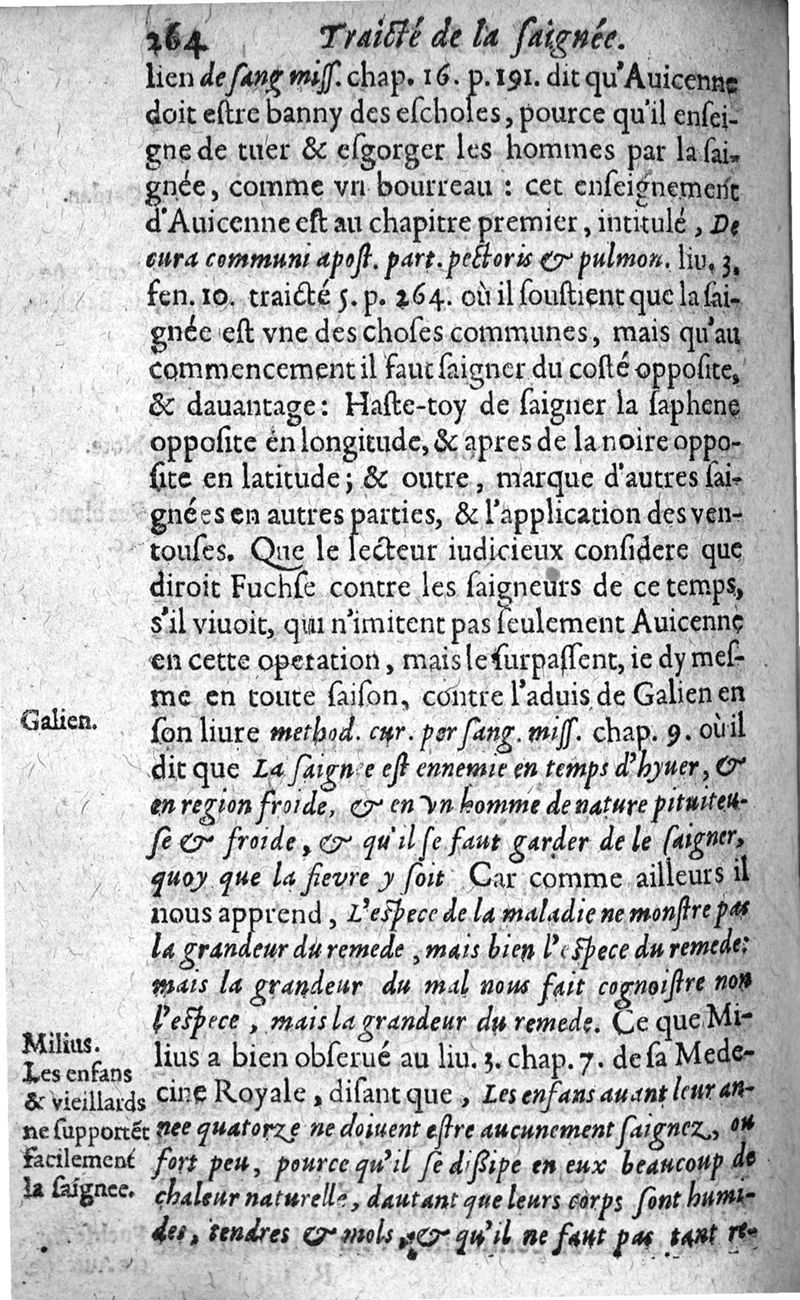 264 Traicté de la saignée.
lien de sang miss. chap. 16. p. 191. dit qu'Auicenne
doit estre banny des escholes, pource qu'il ensei-
gne de tuer & esgorger les hommes par la sai-
gnée, comme vn bourreau : cet enseignement
d'Auicenne est au chapitre premier, intitulé, De
cura communi apost. part. pectoris & pulmon. liu. 3.
fen. 10. traicté 5. p. 264. où il soustient que la sai-
gnée est vne des choses communes, mais qu'au
commencement il faut saigner du costé opposite,
& dauantage: Haste-toy de saigner la saphene
opposite en longitude, & apres de la noire oppo-
site en latitude; & outre, marque d'autres sai-
gnées en autres parties, & l'application des ven-
touses. Que le lecteur iudicieux considere que
diroit Fuchse contre les saigneurs de ce temps,
s'il viuoit, qui n'imitent pas seulement Auicenne
en cette operation, mais le surpassent, ie dy mes-
me en toute saison, contre l'aduis de Galien en
Galien.
son liure method. cur. per sang. miss. chap. 9. où il
dit que La saignee est ennemie en temps d'hyuer, &
en region froide, & en vn homme de nature pituiteu-
se & froide, & qu'il se faut garder de le saigner,
quoy que la fievre y soit Car comme ailleurs il
nous apprend, L'espece de la maladie ne monstre pas
la grandeur du remede, mais bien l'espece du remede:
mais la grandeur du mal nous fait cognoistre non
l'espece, mais la grandeur du remede. Ce que Mi-
lius a bien obserué au liu. 3. chap. 7. de sa Mede-
cine Royale, disant que, Les enfans auant leur an-
nee quatorze ne doiuent estre aucunement saignez, ou
fort peu, pource qu'il se dissipe en eux beaucoup de
chaleur naturelle, dautant que leurs corps sont humi-
des, tendres & mols, & qu'il ne faut pas tant re-
Milius.
Les enfans
& vieillards
ne supportẽt
facilement
la saignee.